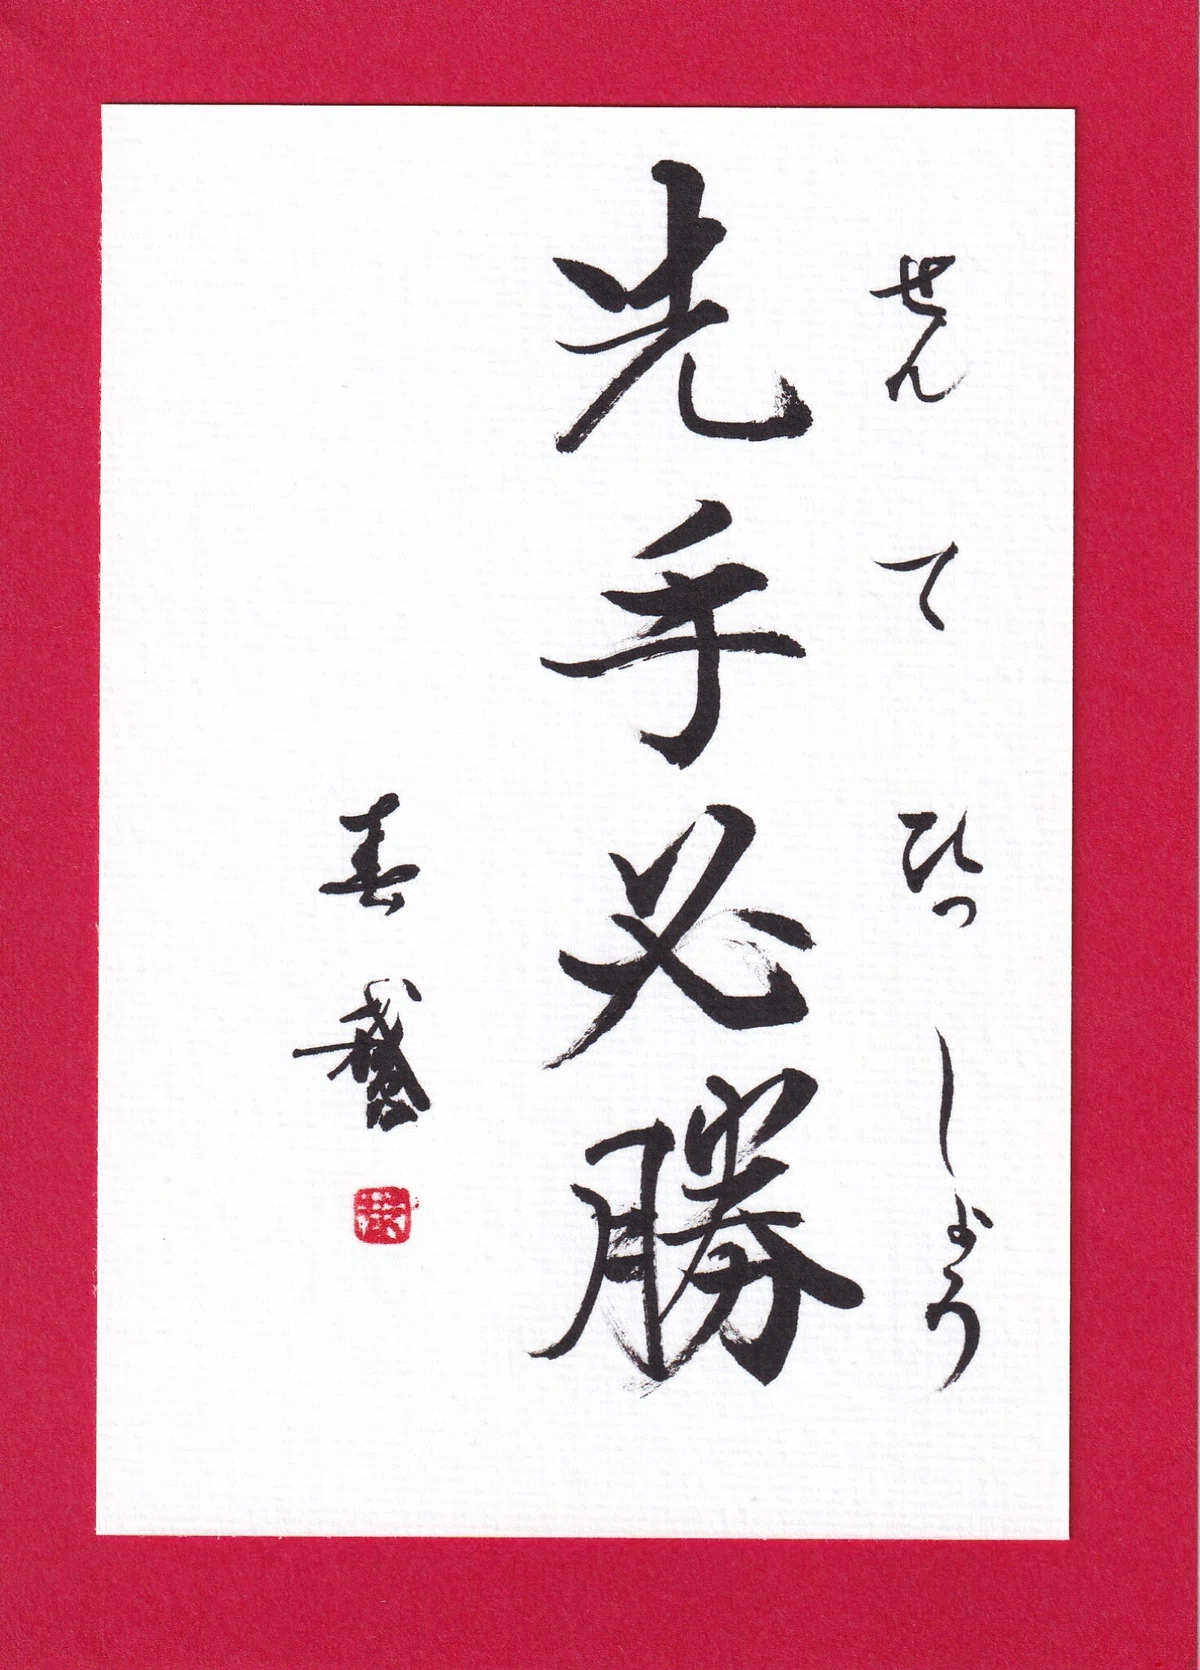 せん て ひっ しょう
先手必勝
春鵞